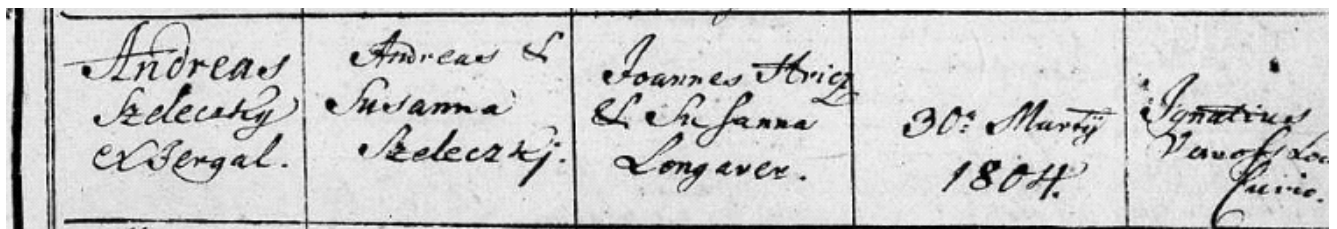 Andreas
Szeleczky
ex Jergal.
Andreas &
Susanna
Szeleczkj.
Joannes Hricz
& Susanna
Longaver.
30ª Martÿ
1804.
Ignatius